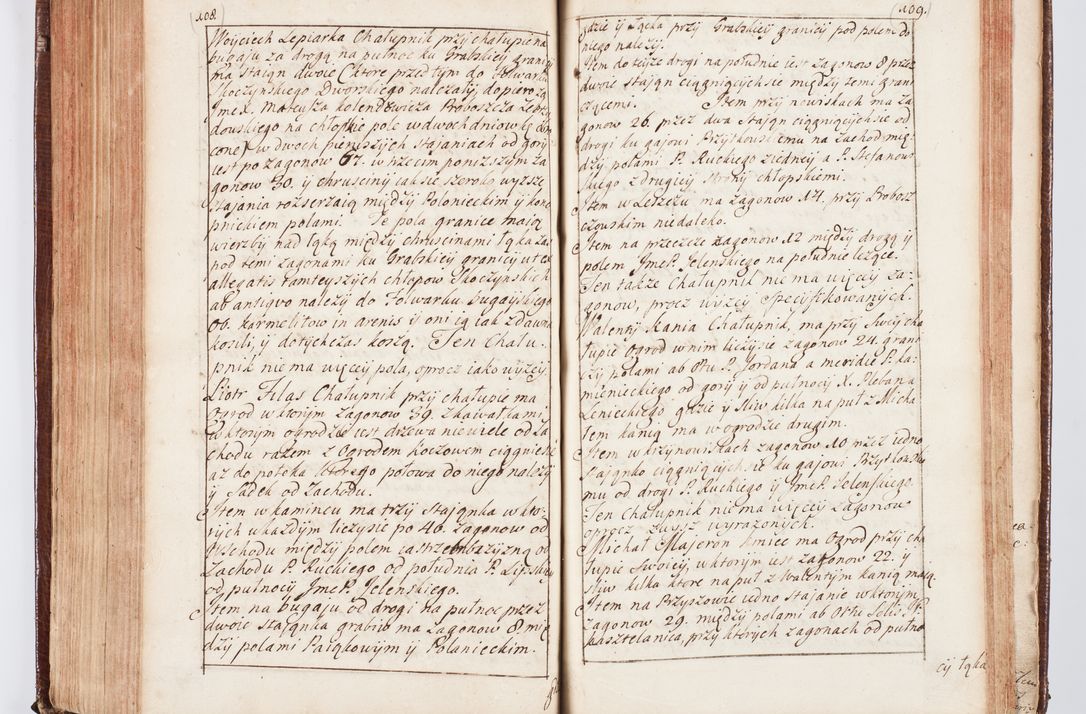 108.
Woyciech Lepiarka Chałupnik przy chałupie na
bugaju za drogą na pułnoc ku Grabskiey granicy
ma staiąn dwoie (ktore przed tym do folwarku
Skoczynskiego Dworskiego należały dopiero za
Jmc X. Mateusza Kolendowicza Proboszcza Zebrzy
dowskiego na chłopskie pole w dwoch dniowkę obro
cone) w dwoch pierwszych staianiach od gory
iest po zagonow 67. w trzecim ponizszym za
gonow 30. ij chruscinij iak sie szeroko wyższe
staiania rozserzaią międzij Polonieckim ij kono
pnickiem polami. Te pola granice maią
wierzby nad łąką międzij chruscinami łąka zas
pod temi zagonami ku Grabskiey granicy ut ex
allegatis tamteyszych chłopow Skoczynskich
ab antiquo należy do Folwarku Bugayskiego
OO. Karmelitow in arenis ij oni ią iak z dawna
kosili, ij dotychczas koszą. Ten Chału-
pnik nie ma więcey pola, oprocz iako wyżey
Piotr Filas Chałupnik przy chałupie ma
Ogrod w ktorym zagonow 39. z kawałkami
w ktorym ogrodzie iest drzewa niewiele od za
chodu razem z Ogrodem Koczowem ciągnienie
aż do potoka ktorego połowa do niego należy
ij Sadek od Zachodu.
Item w kamincu ma trzy staiąnka w kto-
rych w każdym liczysie po 46. zagonow od
Wschodu międzij polem iastrzebbazyzną od
Zachodu P. Ruckiego od południa P. Lipskiey
od pułnocy Jmc P. Jelenskiego.
Item na bugaju od drogi na pułnoc przez
dwoie staiąnka grabie ma zagonow 8. mię
dzij polami Paiąkowym ij Polanieckim.
109.
gdzie ij łąka przy Grabskiey granicy pod polem do
niego należy.
Item do teyże drogi na południe iest zagonow 8 przez
dwoie staiąn ciągniących sie między temi gran
czącemi. Item przy newiskach ma za
gonow 26. przez dwa staiąn ciągniących sie od
drogi ku gajowi Przytkowskiemu na Zachod mię
dzy polami P. Ruckiego z iedney a P. Stefanow
skiego z drugiey strony chłopskiemi.
Item w Letzezu ma zagonow 14. przy Probosz
czowskim niedaleko.
Item na przeczcze zagonow 12 między drogą ij
polem Jmc P. Jelenskiego na południe leżące.
Ten także Chałupnik nie ma więcey za-
gonow, procz wyżey specyfikowanych.
Walenty Kania Chałupnik, ma przy swey cha
łupie Ogrod w nim liczysie zagonow 24. grani
czy polami ab Ortu P. Jordana a meridie P. Ka-
mienieckiego od gory ij od pułnocy X. Plebana
Lenieckiego gdzie ij śliw kilka na puł z Micha
łem kanią ma w ogrodzie drugim.
Item w krzynowskach zagonow 10 przez iedno
staiąnko ciągniących sie ku gajowi Przytkowskie
mu od drogi P. Ruckiego ij Jmc P. Jelenskiego.
Ten Chałupnik nie ma więcey zagonow
oprocz zwysz wyrażonych.
Michał Majeron kmiec ma Ogrod przy cha
łupie swoiey, w ktorym iest zagonow 22. ij
śliw kilka ktore na puł z Walentym kanią maią
Item na Przyszowie iedno staianie w ktorym
zagonow 29. między polami ab Ortu
kasztelanica, przy ktorych zagonach od pułno
cy łąka